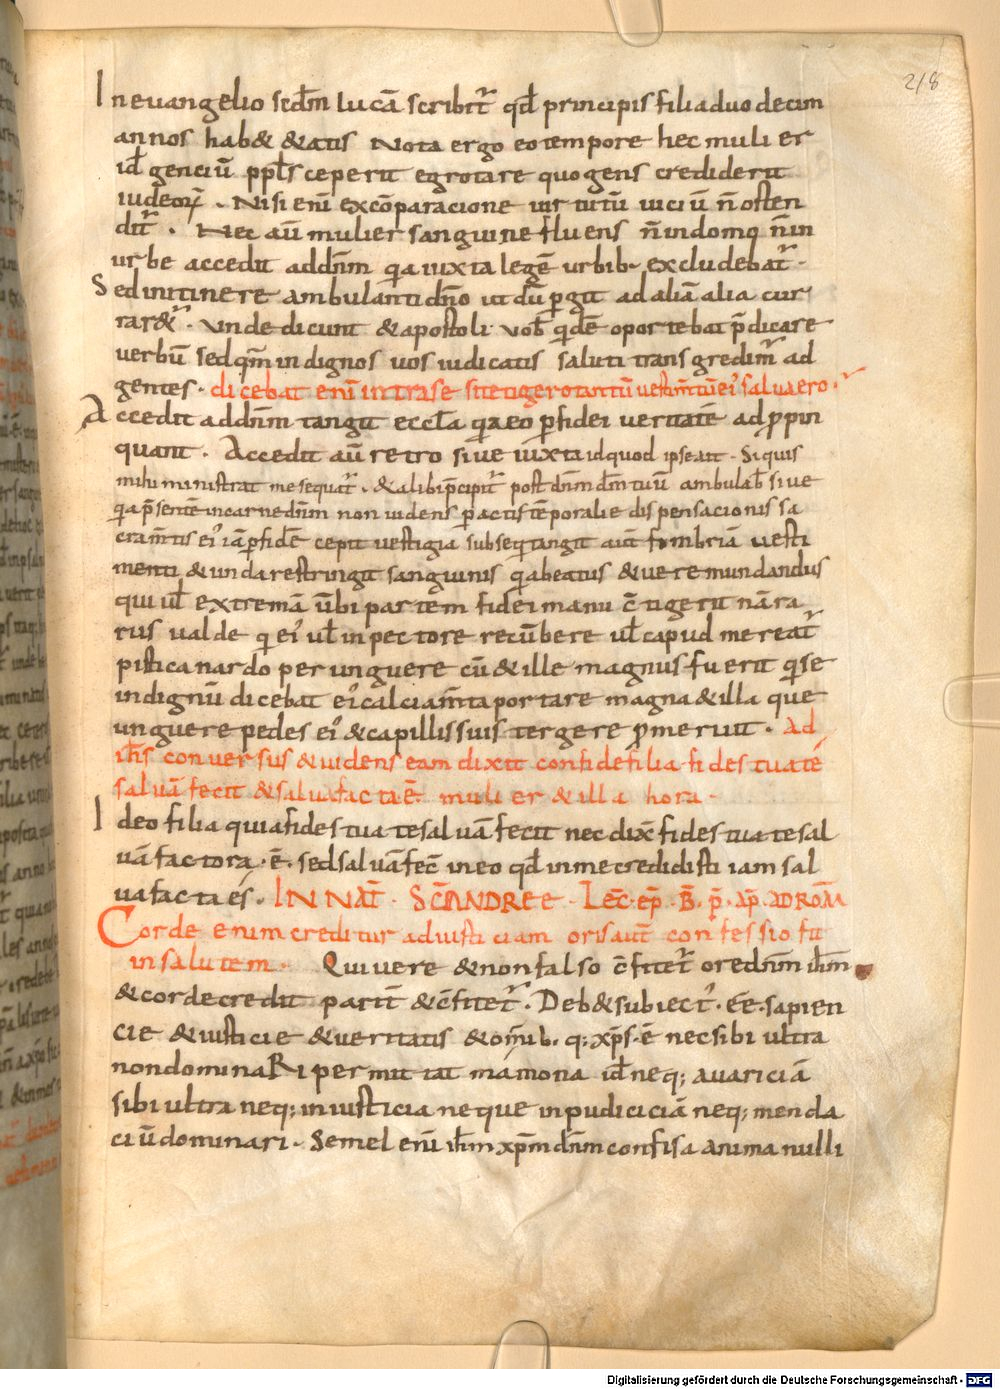 218
In evangelio scdm lucā scribit̄ qd principis filia duo decim
annos hab& &atis Nota ergo eo tempore hec muli er
id genciū ppls ceperit egrotare quo gens crediderit
iudeorꝝ . Nisi enī excōparacione uirtutū uiciū n̄ osten
dit̄ . Nec aū mulier sanguine fluens n̄ in domo n̄ in
urbe accedit ad dn̄m q̇a iuxta legē urbib. excludebat̄ .
Sed in itinere ambulanti dn̄o ut dū ꝑgit ad aliā alia cur
rar&. Unde dicunt & apostoli uob q̇dē oportebat p̄dicare
verbū sed qm̄ indignos uos iudicatis saluti transgredim̄ ad
gentes . dicebat enī intra se si tetigero tantū uestim̄tū ei᾽ salva ero .
Accedit ad dn̄m tangit eccl̄a q̇a eo ꝑ fidei veritatē ad ꝓpin
quant . Accedit aū retro sive iuxta id quod ipse ait . Si quis
mihi ministrat me sequat̄ . & alibi p̄cipit̄ post dn̄m dm̄ tuū ambulab sive
q̇a p̄sentē in carne dn̄m non uidens ꝑactis tēporalie dispensacionis sa
cram̄tis ei᾽ iā ꝑ fidē cepit uestigia subseq̇ tangit aūt fimbriā vesti
menti & unda restringit sanguinis q̇a beatus & vere mundandus
qui ul extremā uerbi partem fidei manu c̄tigerit nā ra
rus valde q̇ ei᾽ ul in pectore recūbere ul capud mereat̄
pistica nardo per unguere cū & ille magnus fuerit q̇ se
indignū dicebat ei᾽ calciam̄ta portare magna & illa que
unguere pedes ei᾽ & capillis suis tergere ꝓmeruit . Ad
ih̄s conversus & uidens eam dixit confide filia fides tua te
salvā fecit & salva facta ē. muli er & illa hora .
Ideo filia quia fides tua te salvā fecit nec dix̄ fides tua te sal
vā factora . ē . sed salvā fec̄ in eo qd in me credidisti iam sal
va facta es . IN NAT̄ . SC̄I ANDREE . Lec̄ . ep̄ . B̄ . p̄ . ap̄ . AD ROM̄
Corde enim creditur ad iusticiam oris aūt confessio fit
in salutem . Qui vere & non falso c̄fitet̄ ore dn̄m ih̄m
& corde credit parit̄ & c̄fitet̄ . Deb& subiect᾽ eē . sapien
cie & iusticie & veritatis & om̄ib. q; xp̄s . ē nec sibi ultra
non dominaRi permittat mamona id neq; avariciā
sibi ultra neq; iniusticia neque inpudiciciā neq; menda
ciū dominari . Semel enī ih̄m xp̄m dn̄m confisa anima nulli
Digitalisierung gefördert durch die Deutsche Forschungsgemeinschaft - DFG